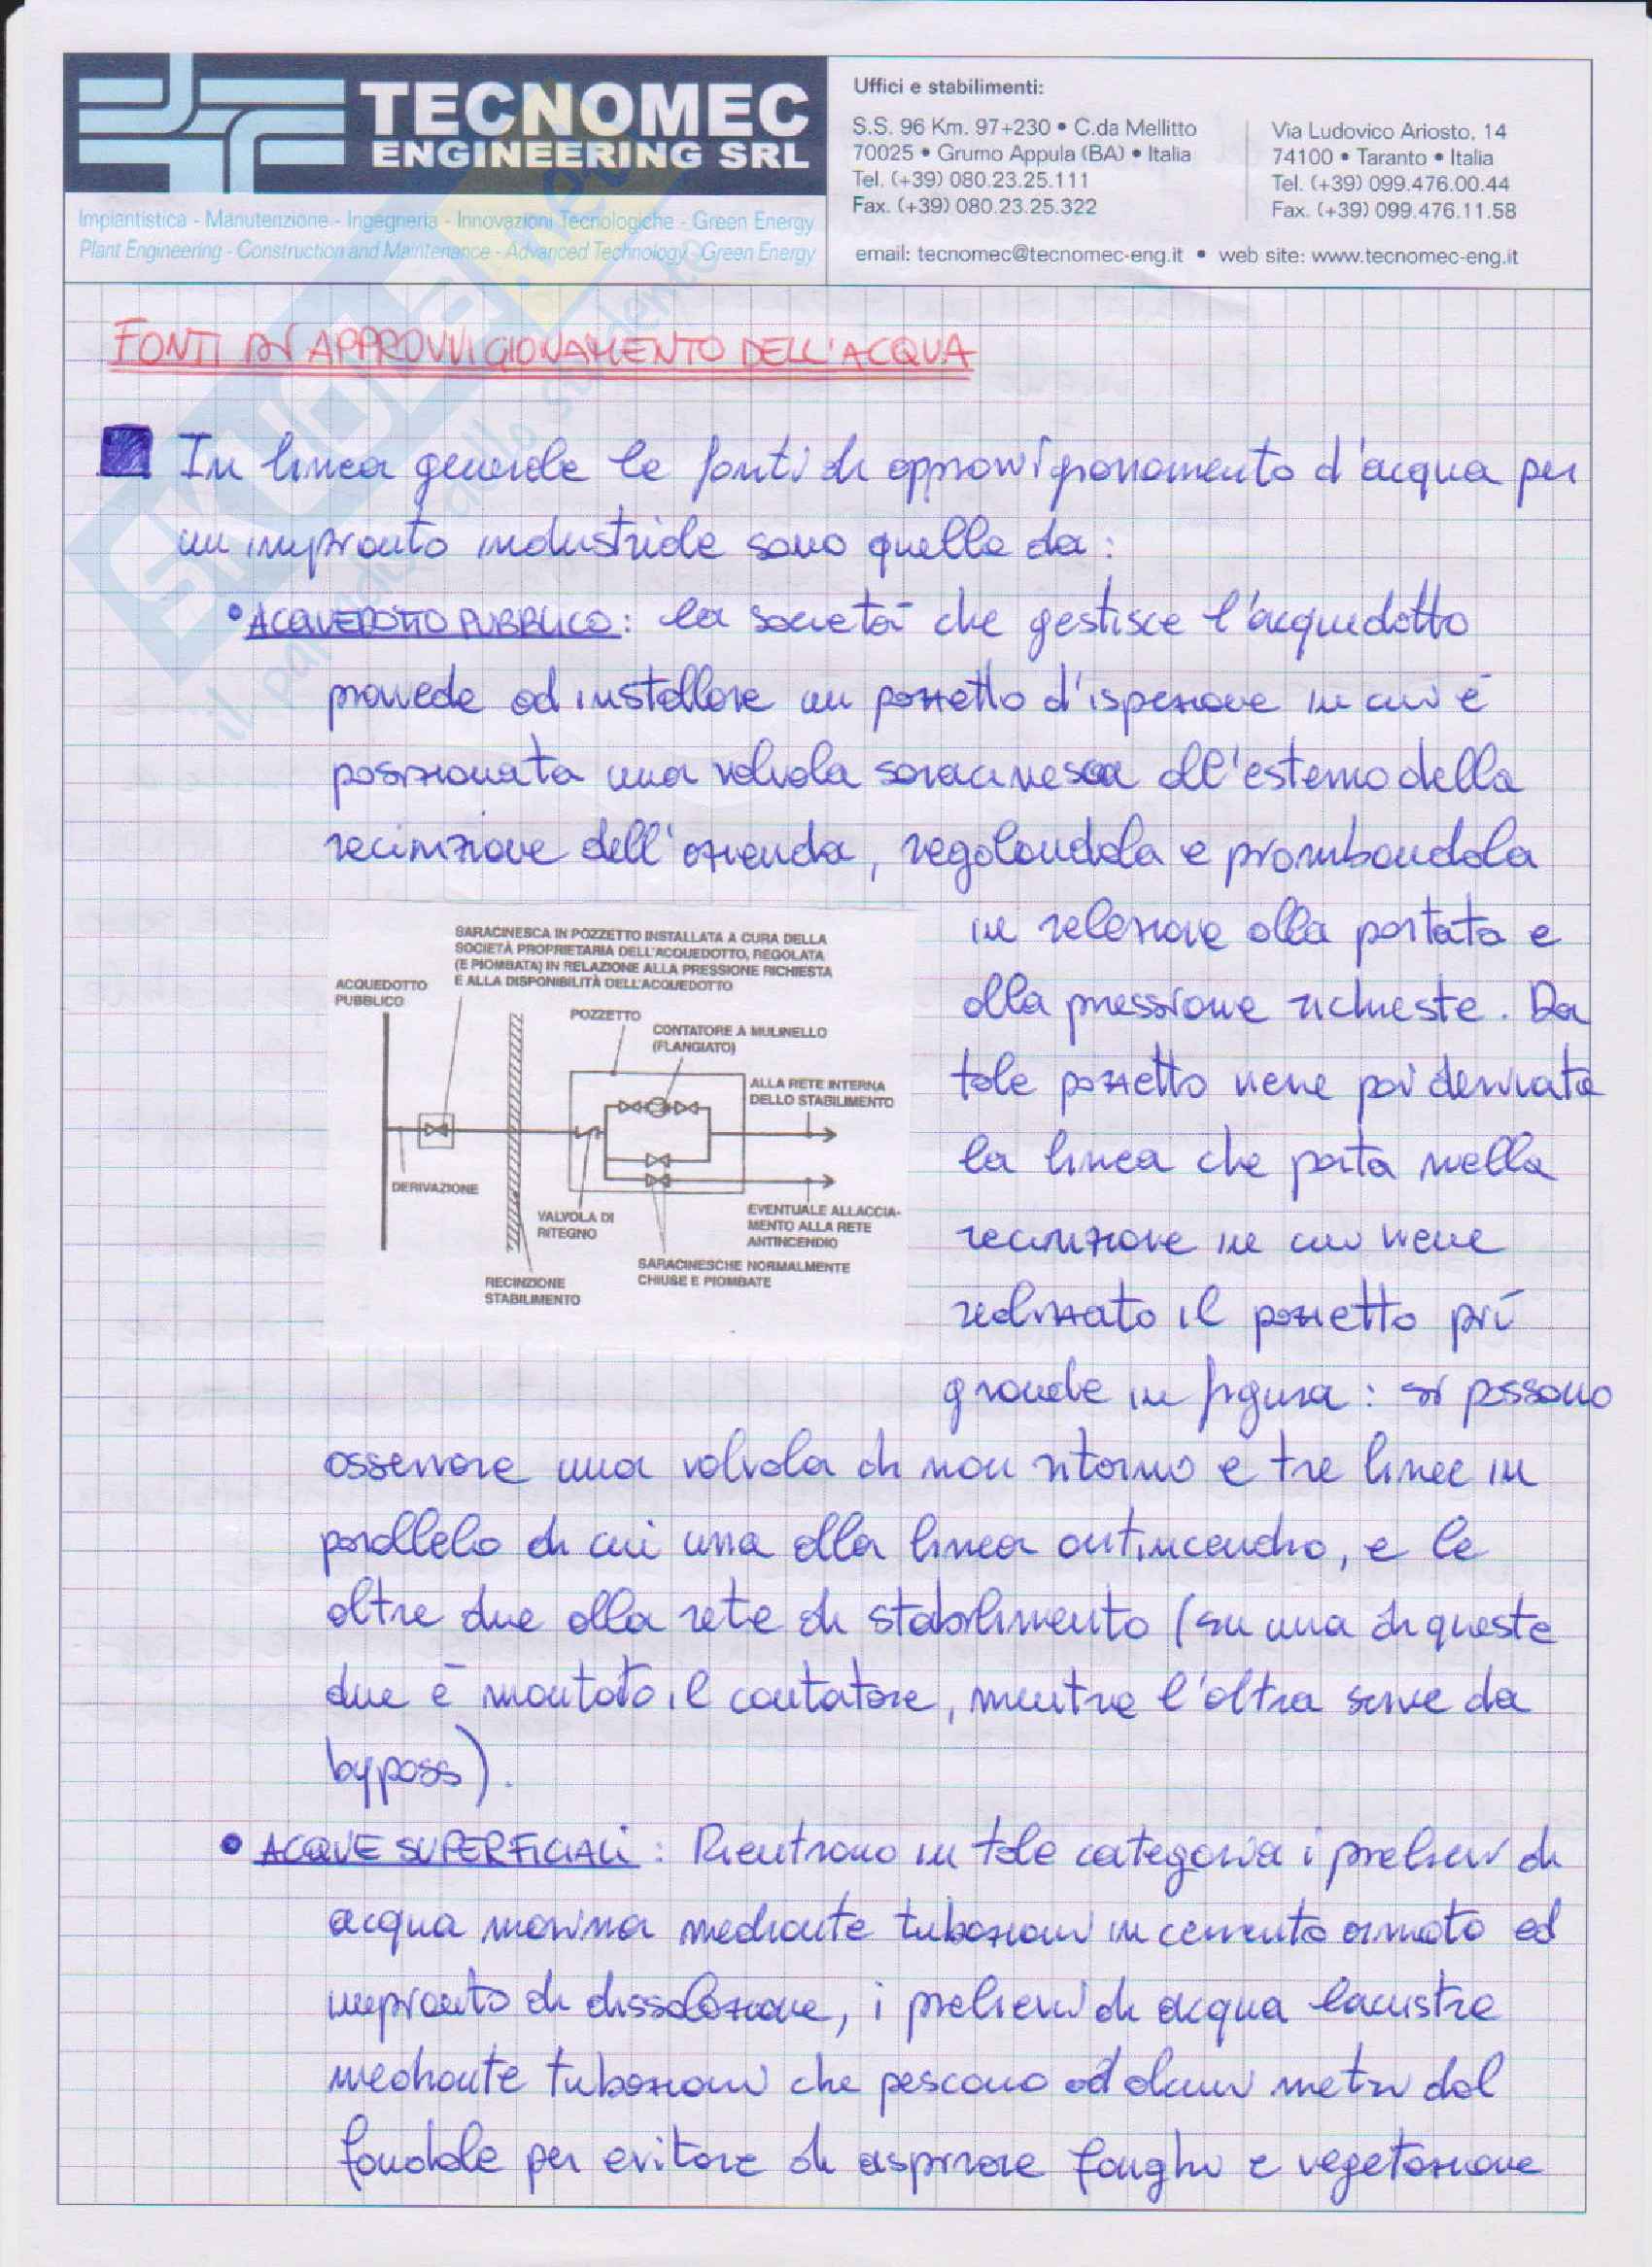 TECNOMEC
ENGINEERING SRL
Impiantistica - Manutenzione - Ingegneria - Innovazioni Tecnologiche - Green Energy
Plant Engineering - Construction and Maintenance - Advanced Technology - Green Energy
Uffici e stabilimenti:
S.S. 96 Km. 97+230 • C.da Mellitto
70025 • Grumo Appula (BA) • Italia
Tel. (+39) 080.23.25.111
Fax. (+39) 080.23.25.322
Via Ludovico Ariosto, 14
74100 • Taranto • Italia
Tel. (+39) 099.476.00.44
Fax. (+39) 099.476.11.58
email: tecnomec@tecnomec-eng.it • web site: www.tecnomec-eng.it
FONTI DI APPROVVIGIONAMENTO DELL'ACQUA
In linea generale le fonti di approvvigionamento d'acqua per
un impianto industriale sono quelle da:
• ACQUEDOTTO PUBBLICO: la società che gestisce l'acquedotto
provvede ad installare un pozzetto d'ispezione in cui è
posizionata una valvola saracinesca all'esterno della
recinzione dell'azienda, regolandola e piombandola
in relazione alla portata e
alla pressione richieste. Da
tale pozzetto viene poi derivata
la linea che porta nella
recinzione in cui viene
realizzato il pozzetto più
grande in figura: si possono
SARACINESCA IN POZZETTO INSTALLATA A CURA DELLA
SOCIETÀ PROPRIETARIA DELL'ACQUEDOTTO, REGOLATA
(E PIOMBATA) IN RELAZIONE ALLA PRESSIONE RICHIESTA
E ALLA DISPONIBILITÀ DELL'ACQUEDOTTO
ACQUEDOTTO
PUBBLICO
POZZETTO
CONTATORE A MULINELLO
(FLANGIATO)
ALLA RETE INTERNA
DELLO STABILIMENTO
DERIVAZIONE
VALVOLA DI
RITEGNO
EVENTUALE ALLACCIA-
MENTO ALLA RETE
ANTINCENDIO
SARACINESCHE NORMALMENTE
CHIUSE E PIOMBATE
RECINZIONE
STABILIMENTO
osservare una valvola di non ritorno e tre linee in
parallelo di cui una alla linea antincendio, e le
altre due alla rete di stabilimento (su una di queste
due è montato il contatore, mentre l'altra serve da
bypass).
• ACQUE SUPERFICIALI: Rientrano in tale categoria i prelievi di
acqua marina mediante tubazioni in cemento armato ed
impianto di dissalazione, i prelievi di acqua lacustre
mediante tubazioni che pescano ad alcuni metri dal
fondale per evitare di aspirare fanghi e vegetazione
SKUOLA.net
il paradiso dello studente